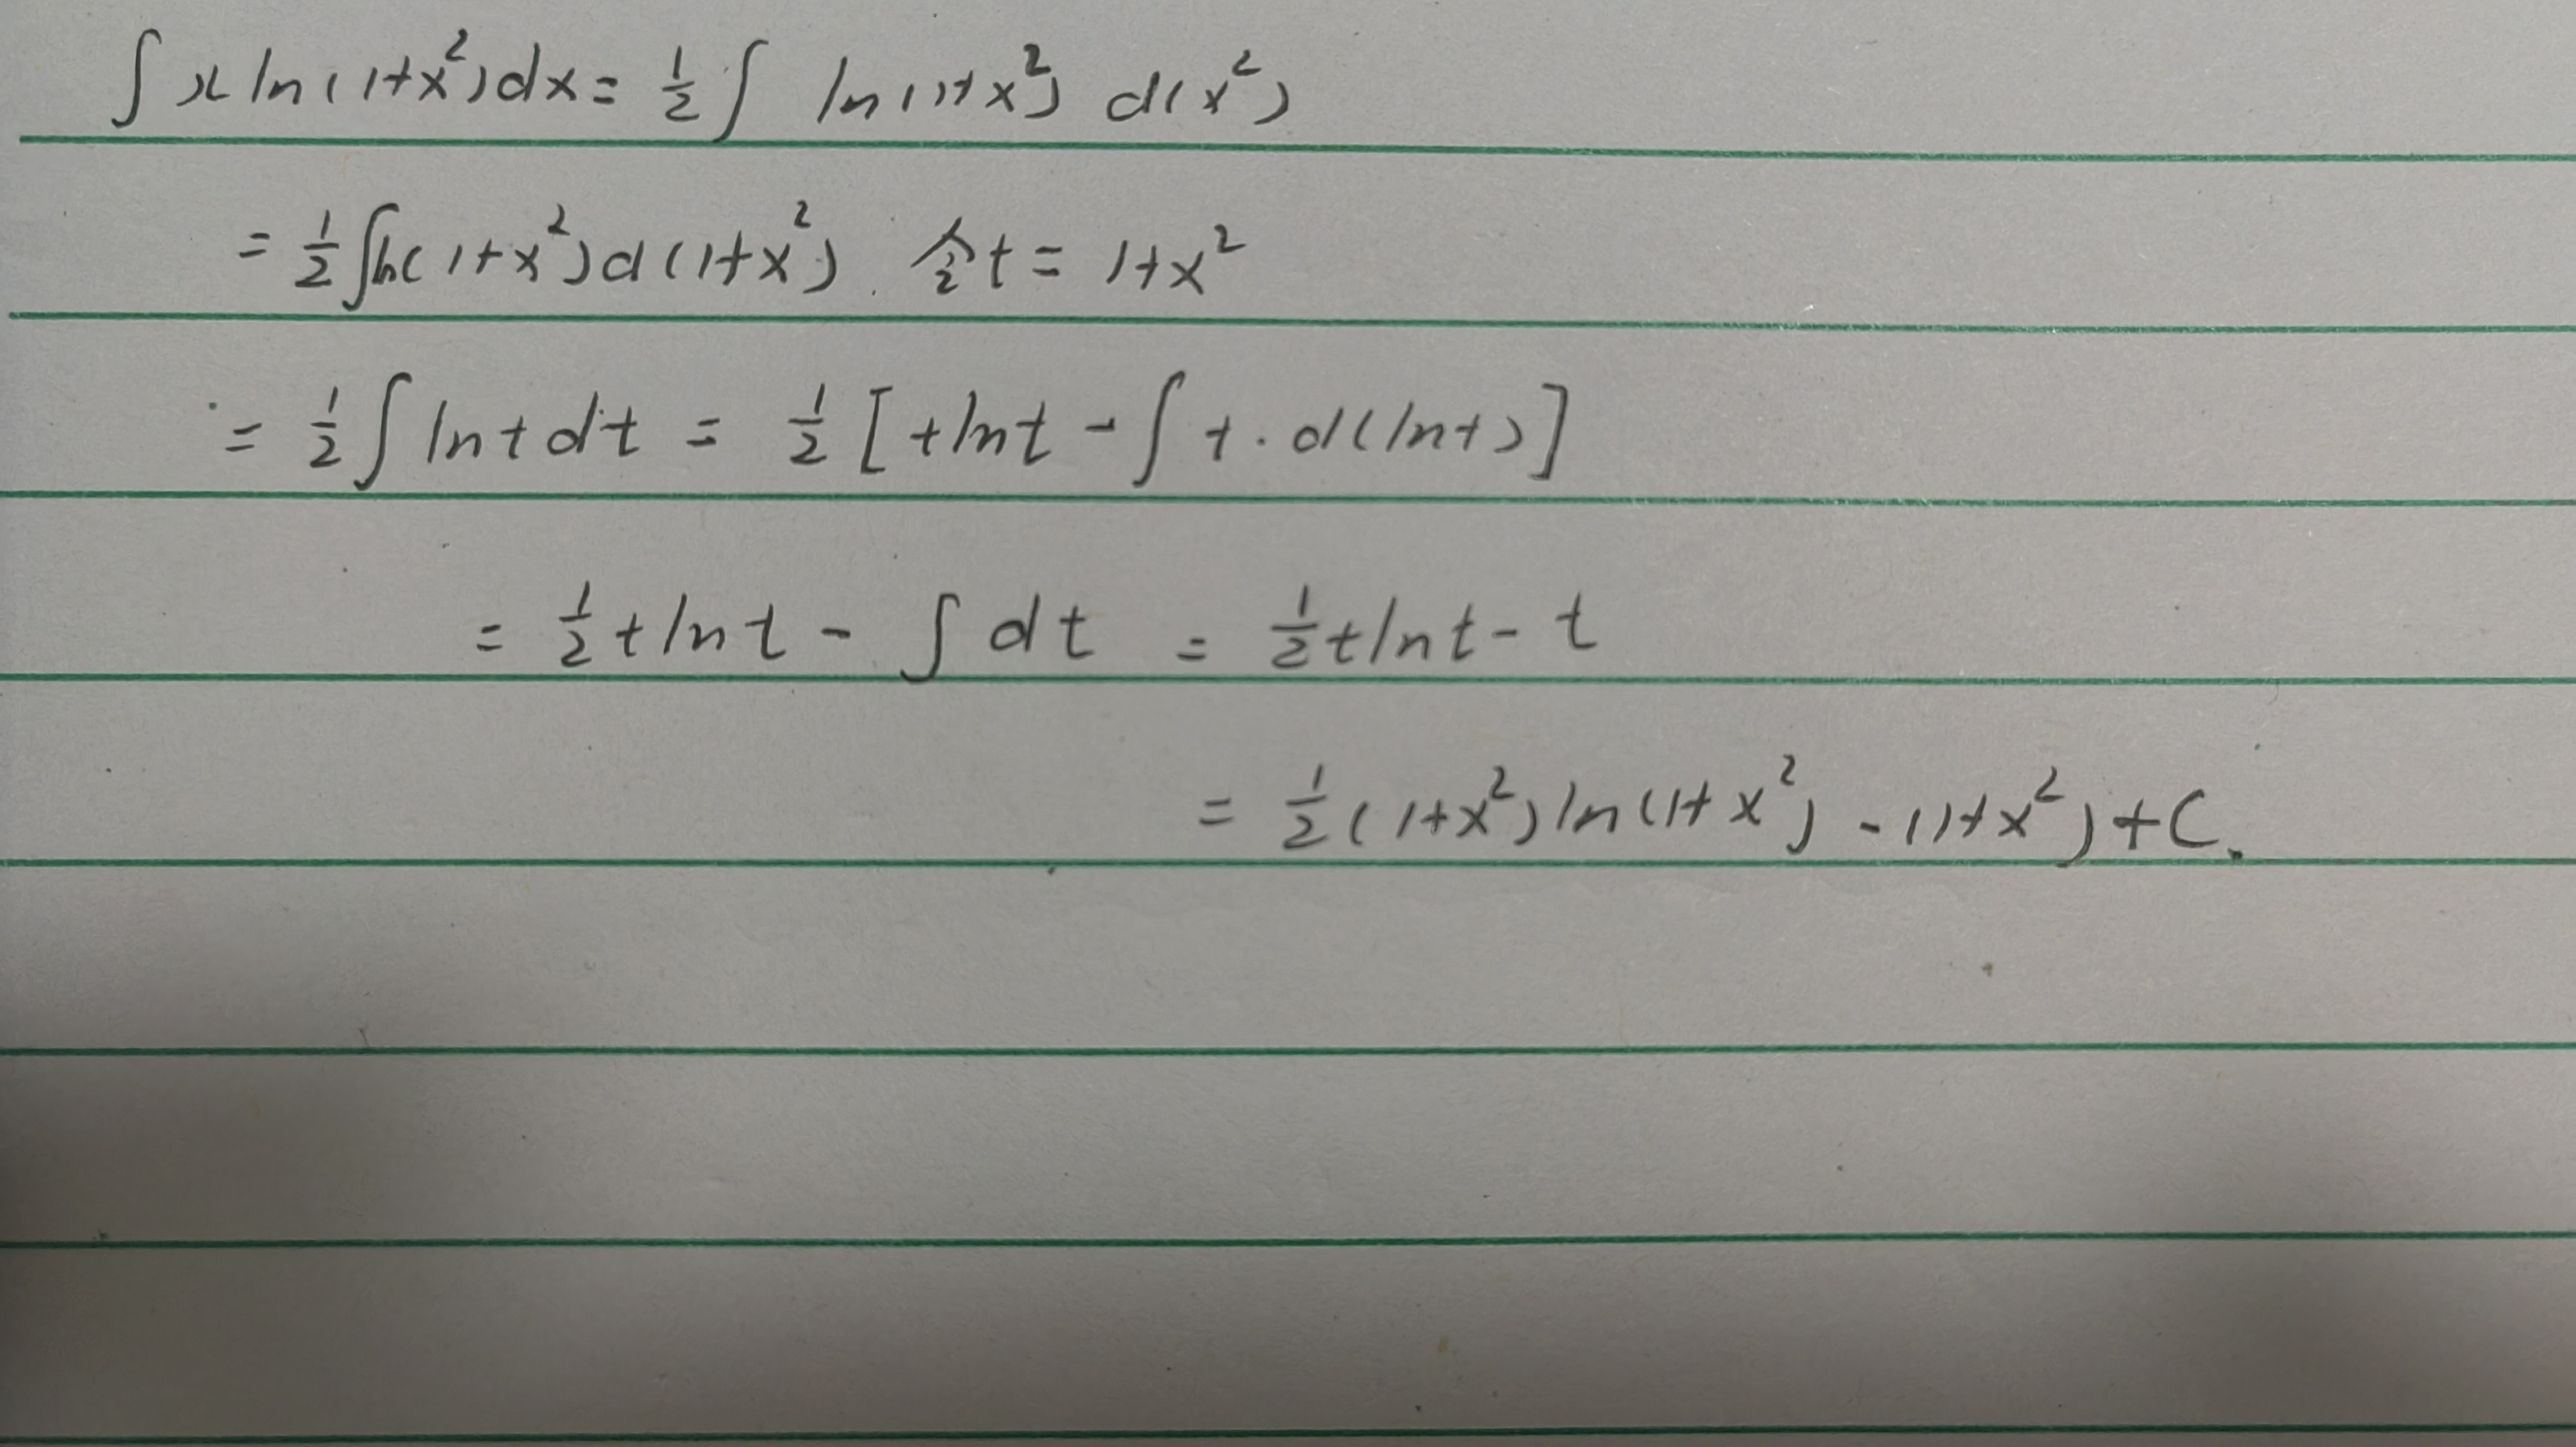 ∫ x ln(1+x²)dx = 1/2 ∫ ln(1+x²) d(x²)
= 1/2 ∫ln(1+x²)d(1+x²). 令t = 1+x²
= 1/2 ∫ ln t dt = 1/2 [t ln t - ∫ t · d(ln t)]
= 1/2 t ln t - ∫ dt = 1/2 t ln t - t
= 1/2 (1+x²) ln(1+x²) - (1+x²) + C.